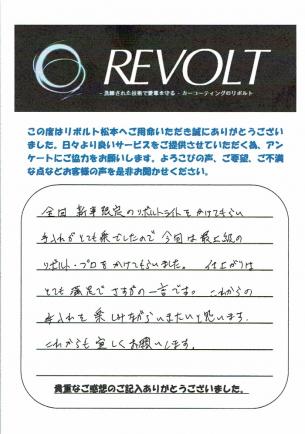 REVOLT
- 洗練された技術で愛車を守る - カーコーティングのリボルト
この度はリボルト松本へご用命いただき誠にありがとうござい
ました。日々より良いサービスをご提供させていただく為、アン
ケートにご協力をお願いします。よろこびの声、ご要望、ご不満
な点などお客様の声を是非お聞かせください。
前回 新車限定のリボルトライトをかけてもらい
手入れがとても楽でしたので今回は最上級の
リボルト・プロをかけてもらいました。 仕上がりは
とても満足でさすがの一言です。これからの
お手入れを楽しみながらいきたいと思います。
これからも宜しくお願いします。
貴重なご感想のご記入ありがとうございました。